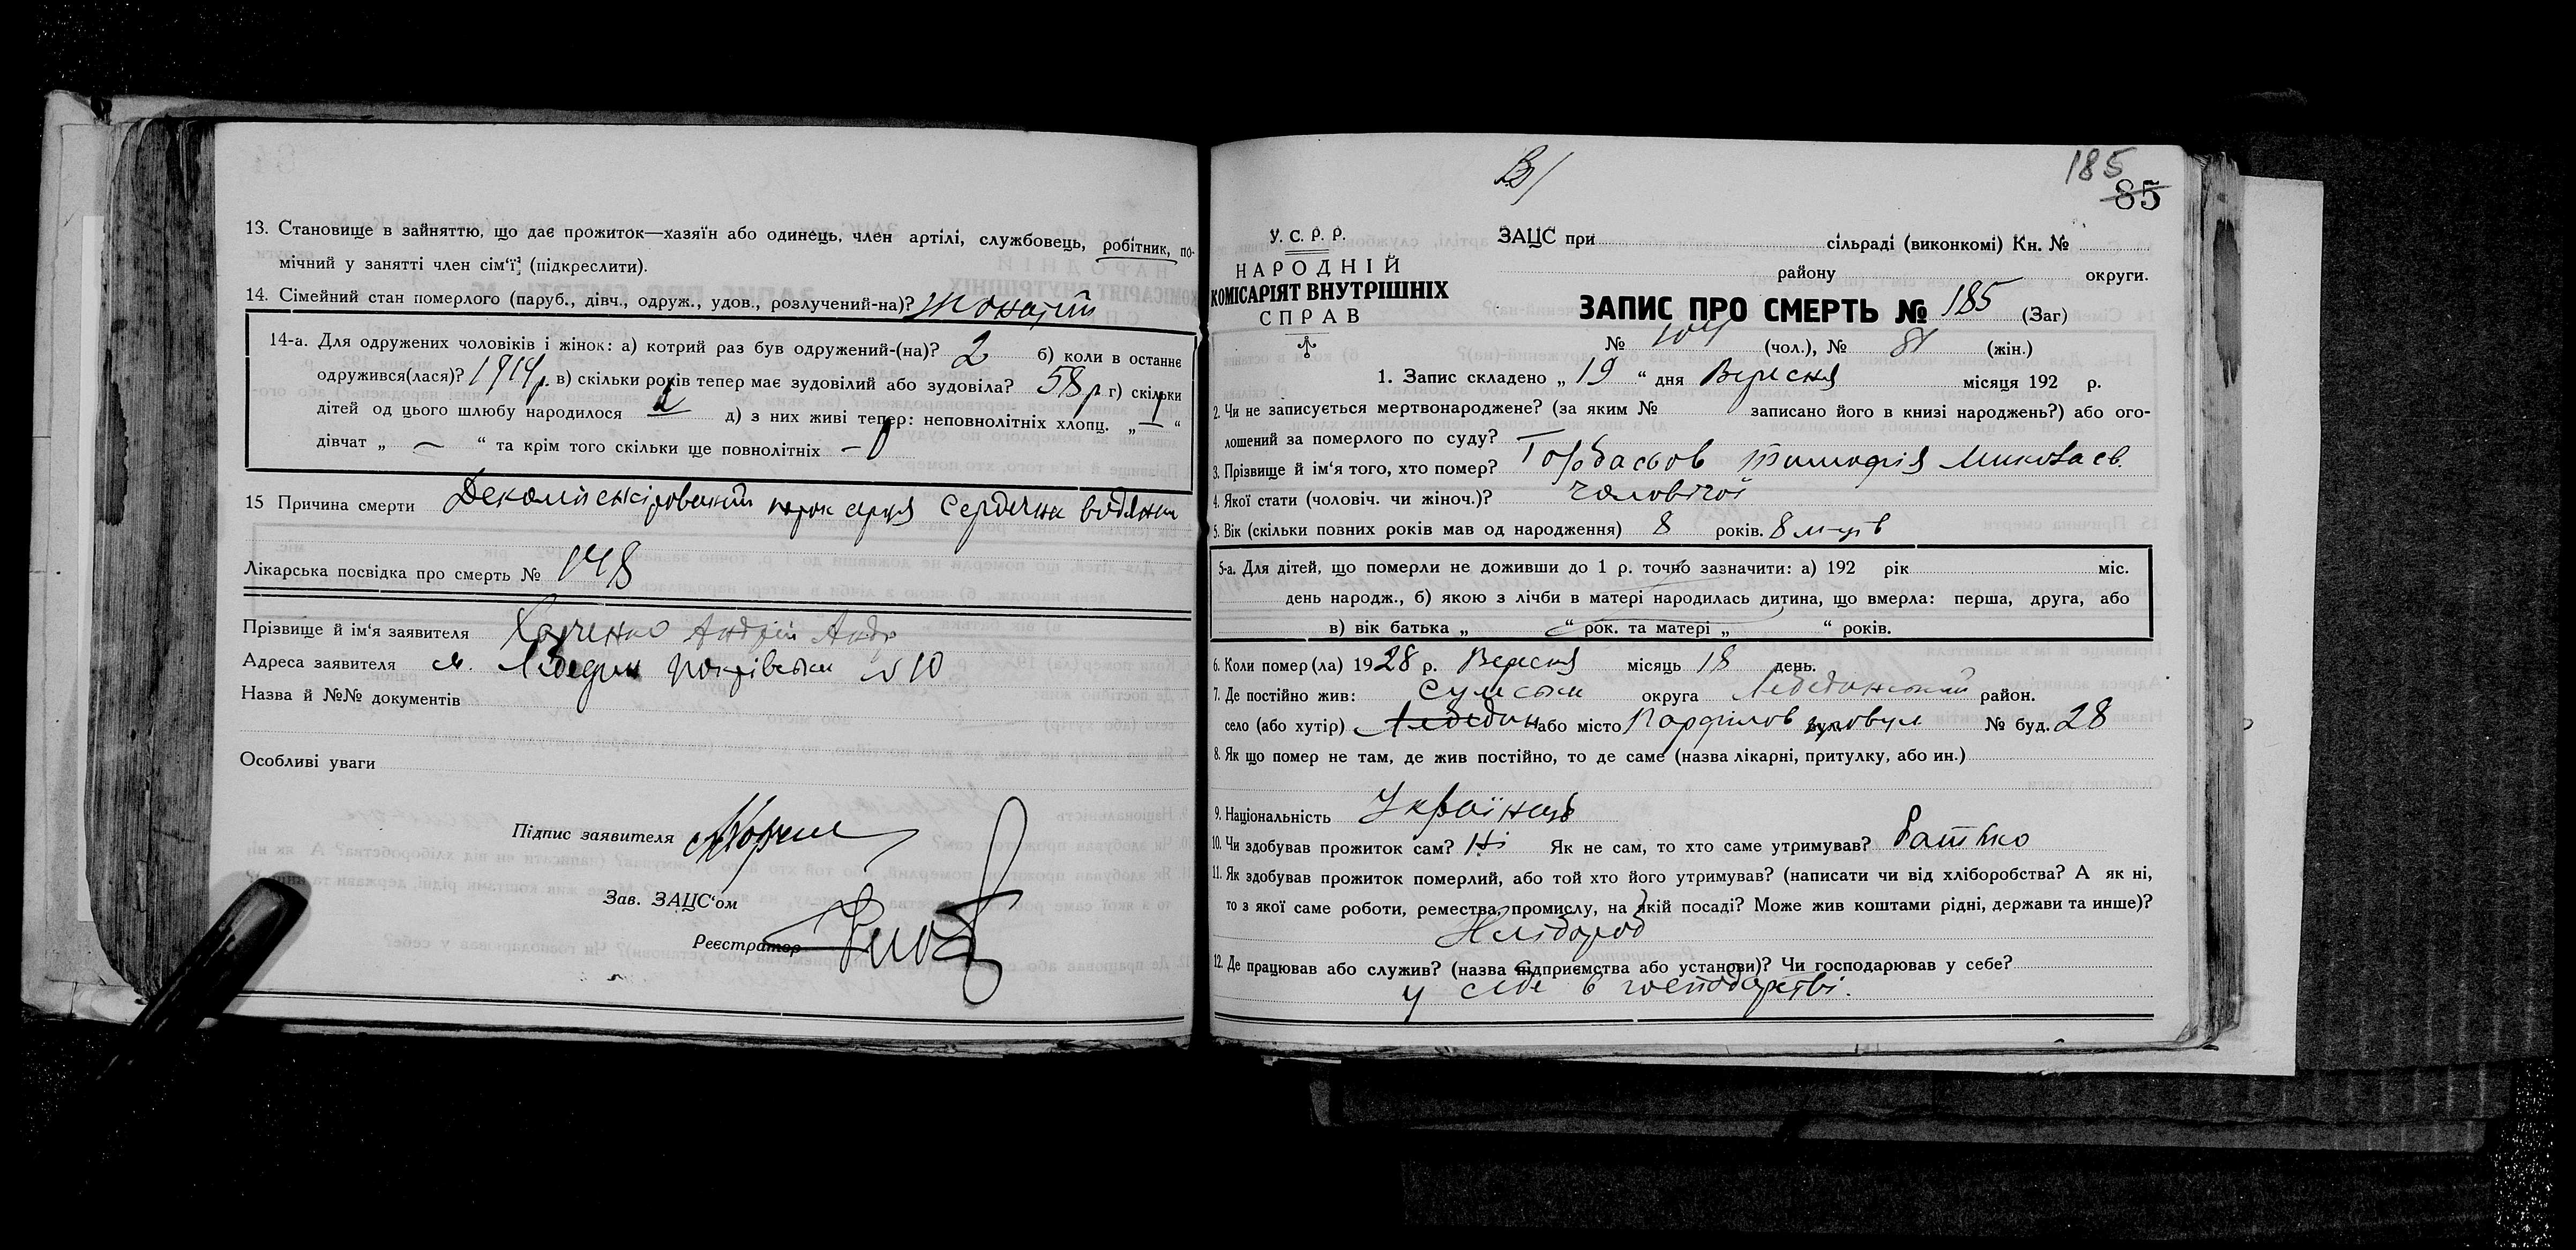 13. Становище в зайняттю, що дає прожиток—хазяїн або одинець, член артілі, службовець, робітник, по-
мічний у занятті член сім'ї (підкреслити).
14. Сімейний стан померлого (паруб., дівч., одруж., удов., розлучений-на)? Жонатий
14-а. Для одружених чоловіків і жінок: а) котрий раз був одружений-(на)? 2 б) коли в останнє
одружився(лася)? 1914 р. в) скільки років тепер має зудовілий або зудовіла? 58 р. г) скільки
дітей од цього шлюбу народилося д) з них живі тепер: неповнолітніх хлопц. „ — “
дівчат „ — “ та крім того скільки ще повнолітніх
15 Причина смерти порок серця Сердечна водянка
Лікарська посвідка про смерть № 148
Прізвище й ім'я заявителя Харченко Андрій Андр
Адреса заявителя м. Лебедин № 10
Назва й №№ документів
Особливі уваги
Підпис заявителя
Зав. ЗАЦС'ом
Реєстратор
В/
185
85
У. С. Р. Р.
НАРОДНІЙ
КОМІСАРІЯТ ВНУТРІШНІХ
СПРАВ
ЗАЦС при сільраді (виконкомі) Кн. №
району округи.
ЗАПИС ПРО СМЕРТЬ № 185 (Заг)
№ 104 (чол.), № 81 (жін.)
1. Запис складено „ 19 “ дня Вересня місяця 192 р.
2. Чи не записується мертвонароджене? (за яким № записано його в книзі народжень?) або ого-
лошений за померлого по суду? —
3. Прізвище й ім'я того, хто помер? Горбасьов Тимофія Миколаєв.
4. Якої стати (чоловіч. чи жіноч.)? чоловічої
5. Вік (скільки повних років мав од народження) 8 років. 8 м-ців
5-а. Для дітей, що померли не доживши до 1 р. точно зазначити: а) 192 рік міс.
день народж., б) якою з лічби в матері народилась дитина, що вмерла: перша, друга, або
в) вік батька „ “ рок. та матері „ “ років.
6. Коли помер(ла) 1928 р. Вересня місяць 18 день.
7. Де постійно жив: Сумськи округа Лебединський район.
село (або хутір) Лебедин або місто № буд. 28
8. Як що помер не там, де жив постійно, то де саме (назва лікарні, притулку, або ин.)
9. Національність Українець
10. Чи здобував прожиток сам? Ні Як не сам, то хто саме утримував? Батько
11. Як здобував прожиток померлий, або той хто його утримував? (написати чи від хліборобства? А як ні,
то з якої саме роботи, ремества, промислу, на якій посаді? Може жив коштами рідні, держави та инше)?
Хлібороб
12. Де працював або служив? (назва підприємства або установи)? Чи господарював у себе?
у себе в господарстві.